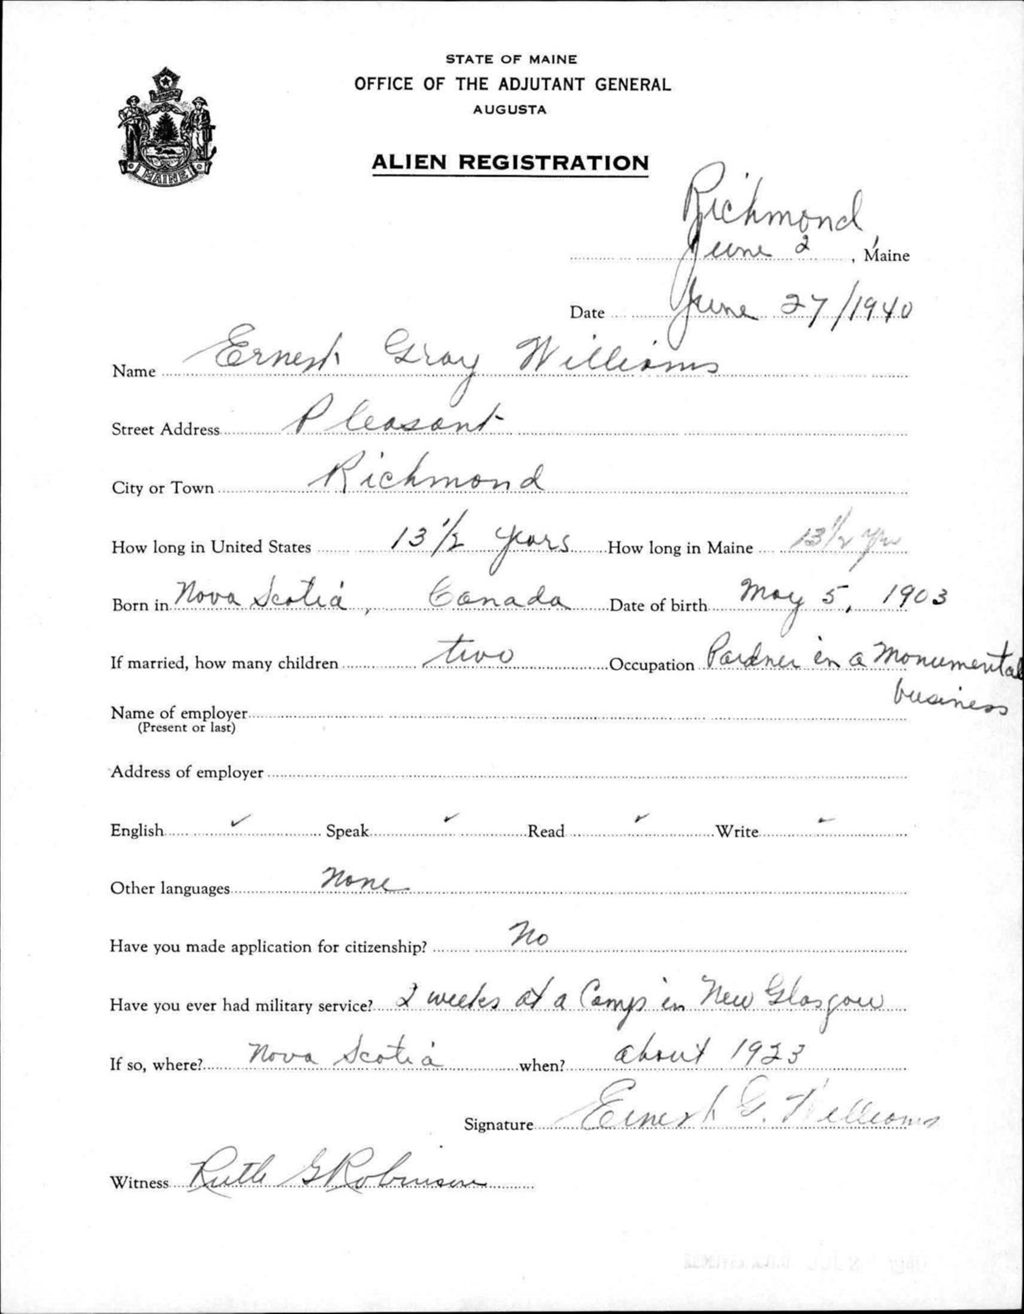 STATE OF MAINE
OFFICE OF THE ADJUTANT GENERAL
AUGUSTA
ALIEN REGISTRATION
MAINE
Richmond,
June 2, Maine
Date June 27/1940
Name Ernest Gray Williams
Street Address Pleasant
City or Town Richmond
How long in United States 13 1/2 years How long in Maine 13 1/2 yrs
Born in Nova Scotia, Canada Date of birth May 5, 1903
If married, how many children two Occupation Pardner in a Monumental
business
Name of employer
(Present or last)
Address of employer
English ✓ Speak ✓ Read ✓ Write ✓
Other languages None
Have you made application for citizenship? No
Have you ever had military service? 2 weeks at a Camp in New Glasgow
If so, where? Nova Scotia when? about 1923
Signature Ernest G. Williams
Witness Ruth G Robinson